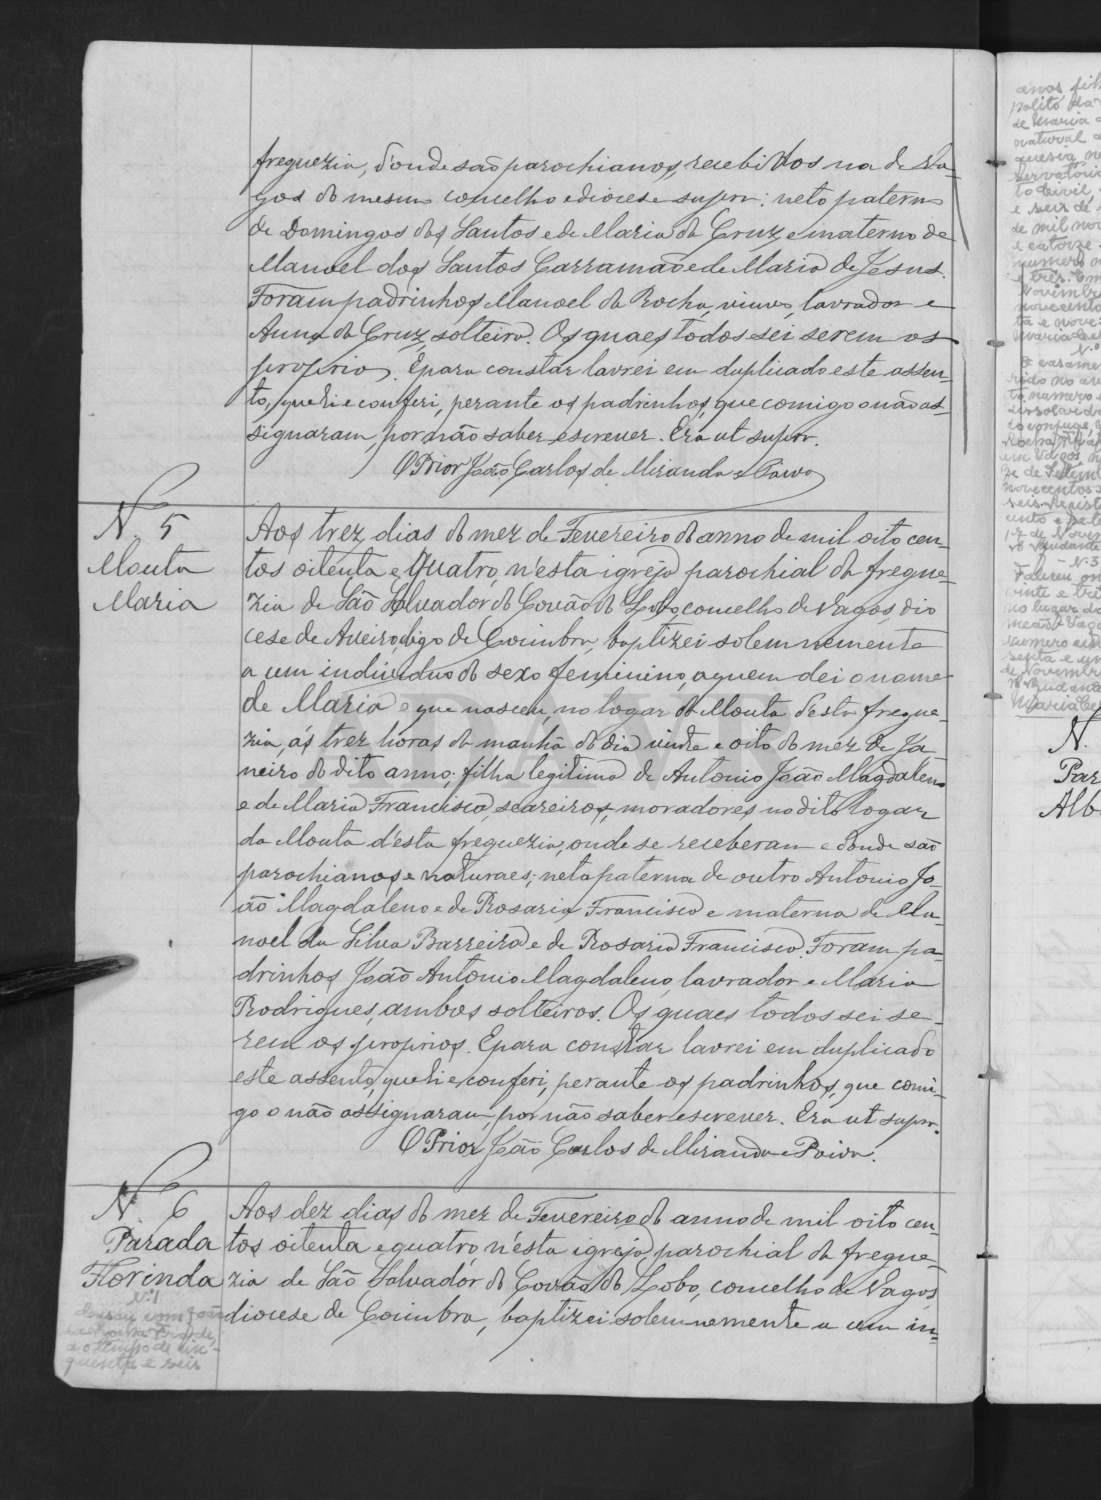 freguezia, d'onde são parochianos, recebidos na de Va-
gos do mesmo concelho e diocese supra: neto paterno
de Domingos dos Santos e de Maria da Cruz e materno de
Manoel dos Santos Carramão e de Maria de Jesus.
Foram padrinhos Manoel da Rocha, viuvo, lavrador e
Anna da Cruz, solteira. Os quaes todos sei serem os
proprios. E para constar lavrei em duplicado este assen-
to, que li e conferi, perante os padrinhos, que comigo o não as-
signaram, por não saber escrever. Era ut supra.
O Prior João Carlos de Miranda e Paiva
N. 5
Mouta
Maria
Aos trez dias do mez de Fevereiro do anno de mil oito cen-
tos oitenta e quatro, n'esta igreja parochial da fregue-
zia de São Salvador do Covão do Lobo, concelho de Vagos, dio
cese de Aveiro, digo de Coimbra, baptizei solemnemente
a um individuo do sexo femenino, a quem dei o nome
de Maria e que nasceu, no logar da Mouta d'esta fregue-
zia, ás trez horas da manhã do dia vinte e oito do mez de Ja
neiro do dito anno; filha legitima de Antonio João Magdaleno
e de Maria Francisca, seareiros, moradores no dito logar
da Mouta d'esta freguezia, onde se receberam e donde são
parochianos e naturaes; neta paterna de outro Antonio Jo-
ão Magdaleno e de Rosaria Francisca e materna de Ma-
noel da Silva Barreira e de Rosaria Francisca. Foram pa-
drinhos João Antonio Magdaleno, lavrador e Maria
Rodrigues, ambos solteiros. Os quaes todos sei se-
rem os proprios. E para constar lavrei em duplicado
este assento, que li e conferi, perante os padrinhos, que comi-
go o não assignaram, por não saber escrever. Era ut supra.
O Prior João Carlos de Miranda e Paiva.
N. 6
Parada
Florinda
Nº1
Casou com João
ao tempo de cin-
quenta e seis
Aos dez dias do mez de Fevereiro do anno de mil oito cen
tos oitenta e quatro n'esta igreja parochial da fregue-
zia de São Salvador do Covão do Lobo, concelho de Vagos,
diocese de Coimbra, baptizei solemnemente a um in-
anos, fil
de Maria
natural
to civil
de mil nov
e catorze
numero
e tres. Em
Novembro
novecento
ta e nove
N.º
O casame
to numero
dissolvido
conjuge
em Vagos
de Setem
novecentos
seis. Regist
cento e sete
17 de Novem
O Ajudante
N.º 3
Faleceu
vinte e tre
no lugar do
numero
senta e um
de Novembr
O Ajudante
N.
Par
Alb